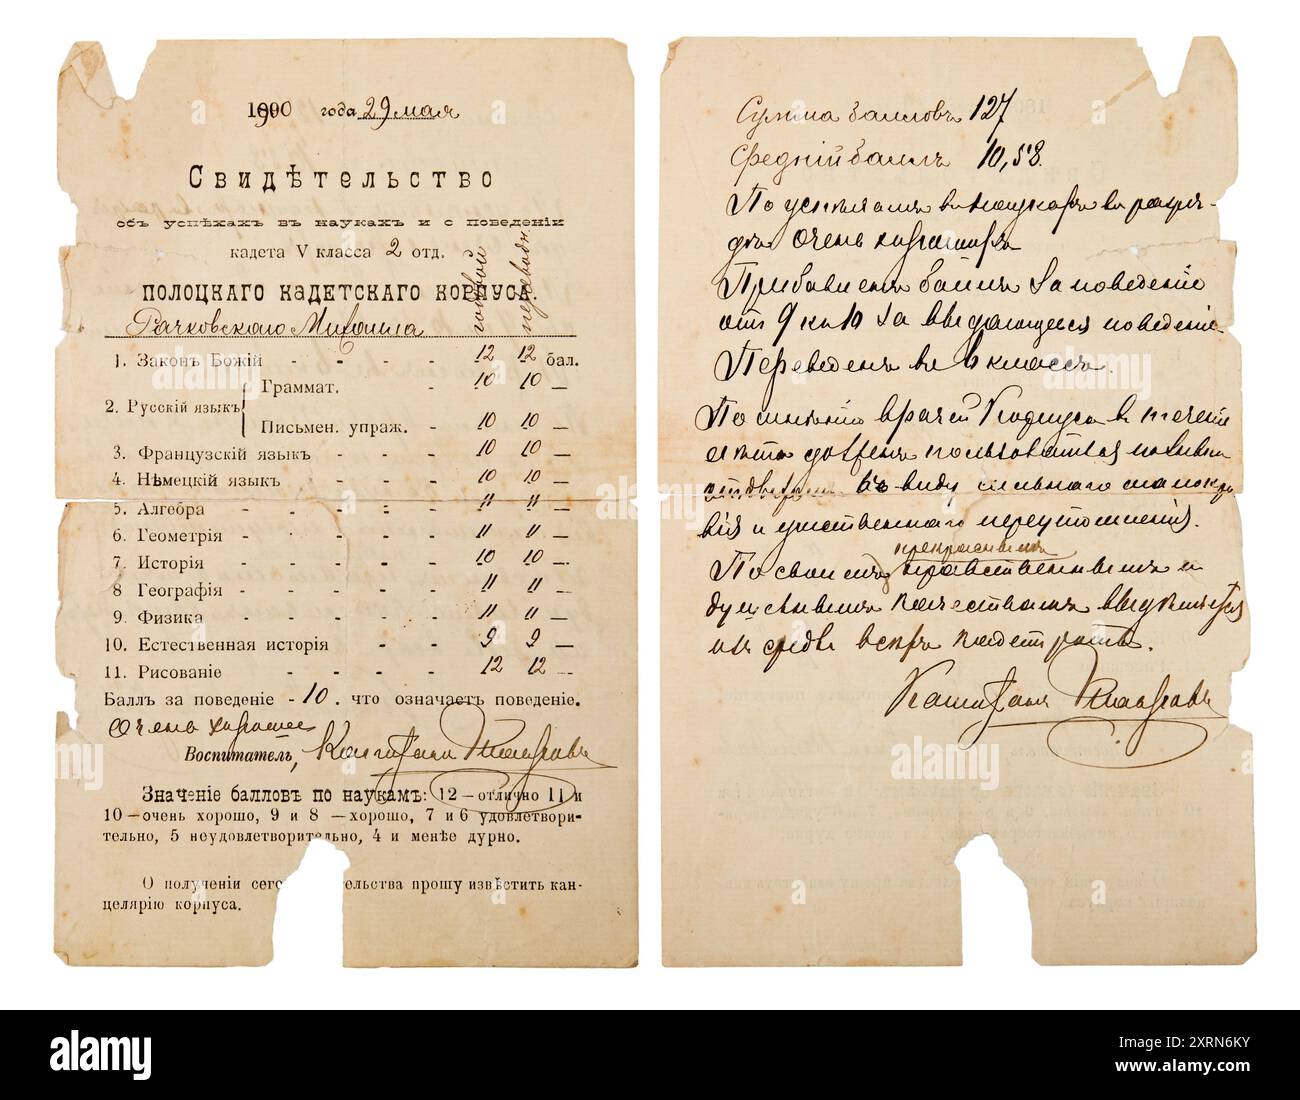 1900 года 29 мая
Свидѣтельство
объ успѣхахъ въ наукахъ и о поведеніи
кадета V класса 2 отд.
ПОЛОЦКАГО КАДЕТСКАГО КОРПУСА.
годовой
переводн.
Рачковскаго Михаила
1. Законъ Божій - - - 12 12 бал.
2. Русскій языкъ
Граммат. - - 10 10 —
Письмен. упраж. - 10 10 —
3. Французскій языкъ - - - 10 10 —
4. Нѣмецкій языкъ - - - 10 10 —
5. Алгебра - - - - - 11 11 —
6. Геометрія - - - - - 11 11 —
7. Исторія - - - - - 10 10 —
8 Географія - - - - - 11 11 —
9. Физика - - - - - 11 11 —
10. Естественная исторія - - - 9 9 —
11. Рисованіе - - - - 12 12 —
Баллъ за поведеніе - 10. что означаетъ поведеніе.
Очень хорошее
Воспитатель, Капитанъ
Значеніе балловъ по наукамъ: 12 — отлично 11 и
10 — очень хорошо, 9 и 8 — хорошо, 7 и 6 удовлетвори-
тельно, 5 неудовлетворительно, 4 и менѣе дурно.
О полученіи сего тельства прошу извѣстить кан-
целярію корпуса.
Сумма балловъ 127
Средній баллъ 10,58.
По успѣхамъ въ наукахъ въ разря-
дѣ очень хорошихъ
Прибавленъ баллъ за поведеніе
отъ 9 къ 10 за выдающееся поведеніе.
Переведенъ въ 6 классъ.
По мнѣнію врачей Корпуса въ теченіе
лѣта долженъ пользоваться полнымъ
отдыхомъ въ виду сильнаго малокро-
вія и умственнаго переутомленія.
По своимъ прекраснымъ нравственнымъ и
душевнымъ качествамъ выдѣляется
изъ среды всѣхъ кадетъ роты.
Капитанъ
alamy
alamy
Image ID: 2XRN6KY
www.alamy.com